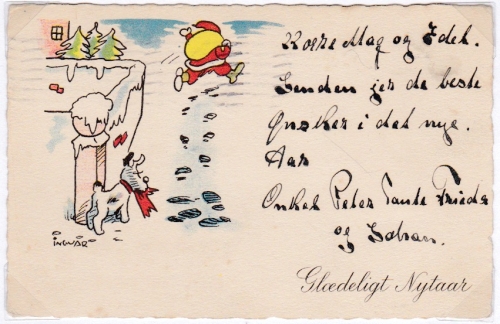 Kære Mag og Edel.
Senden jer de beste
Ønsker i det nye.
Aar
Onkel Peter Tante Frieda
og
Glædeligt Nytaar
INGVAR